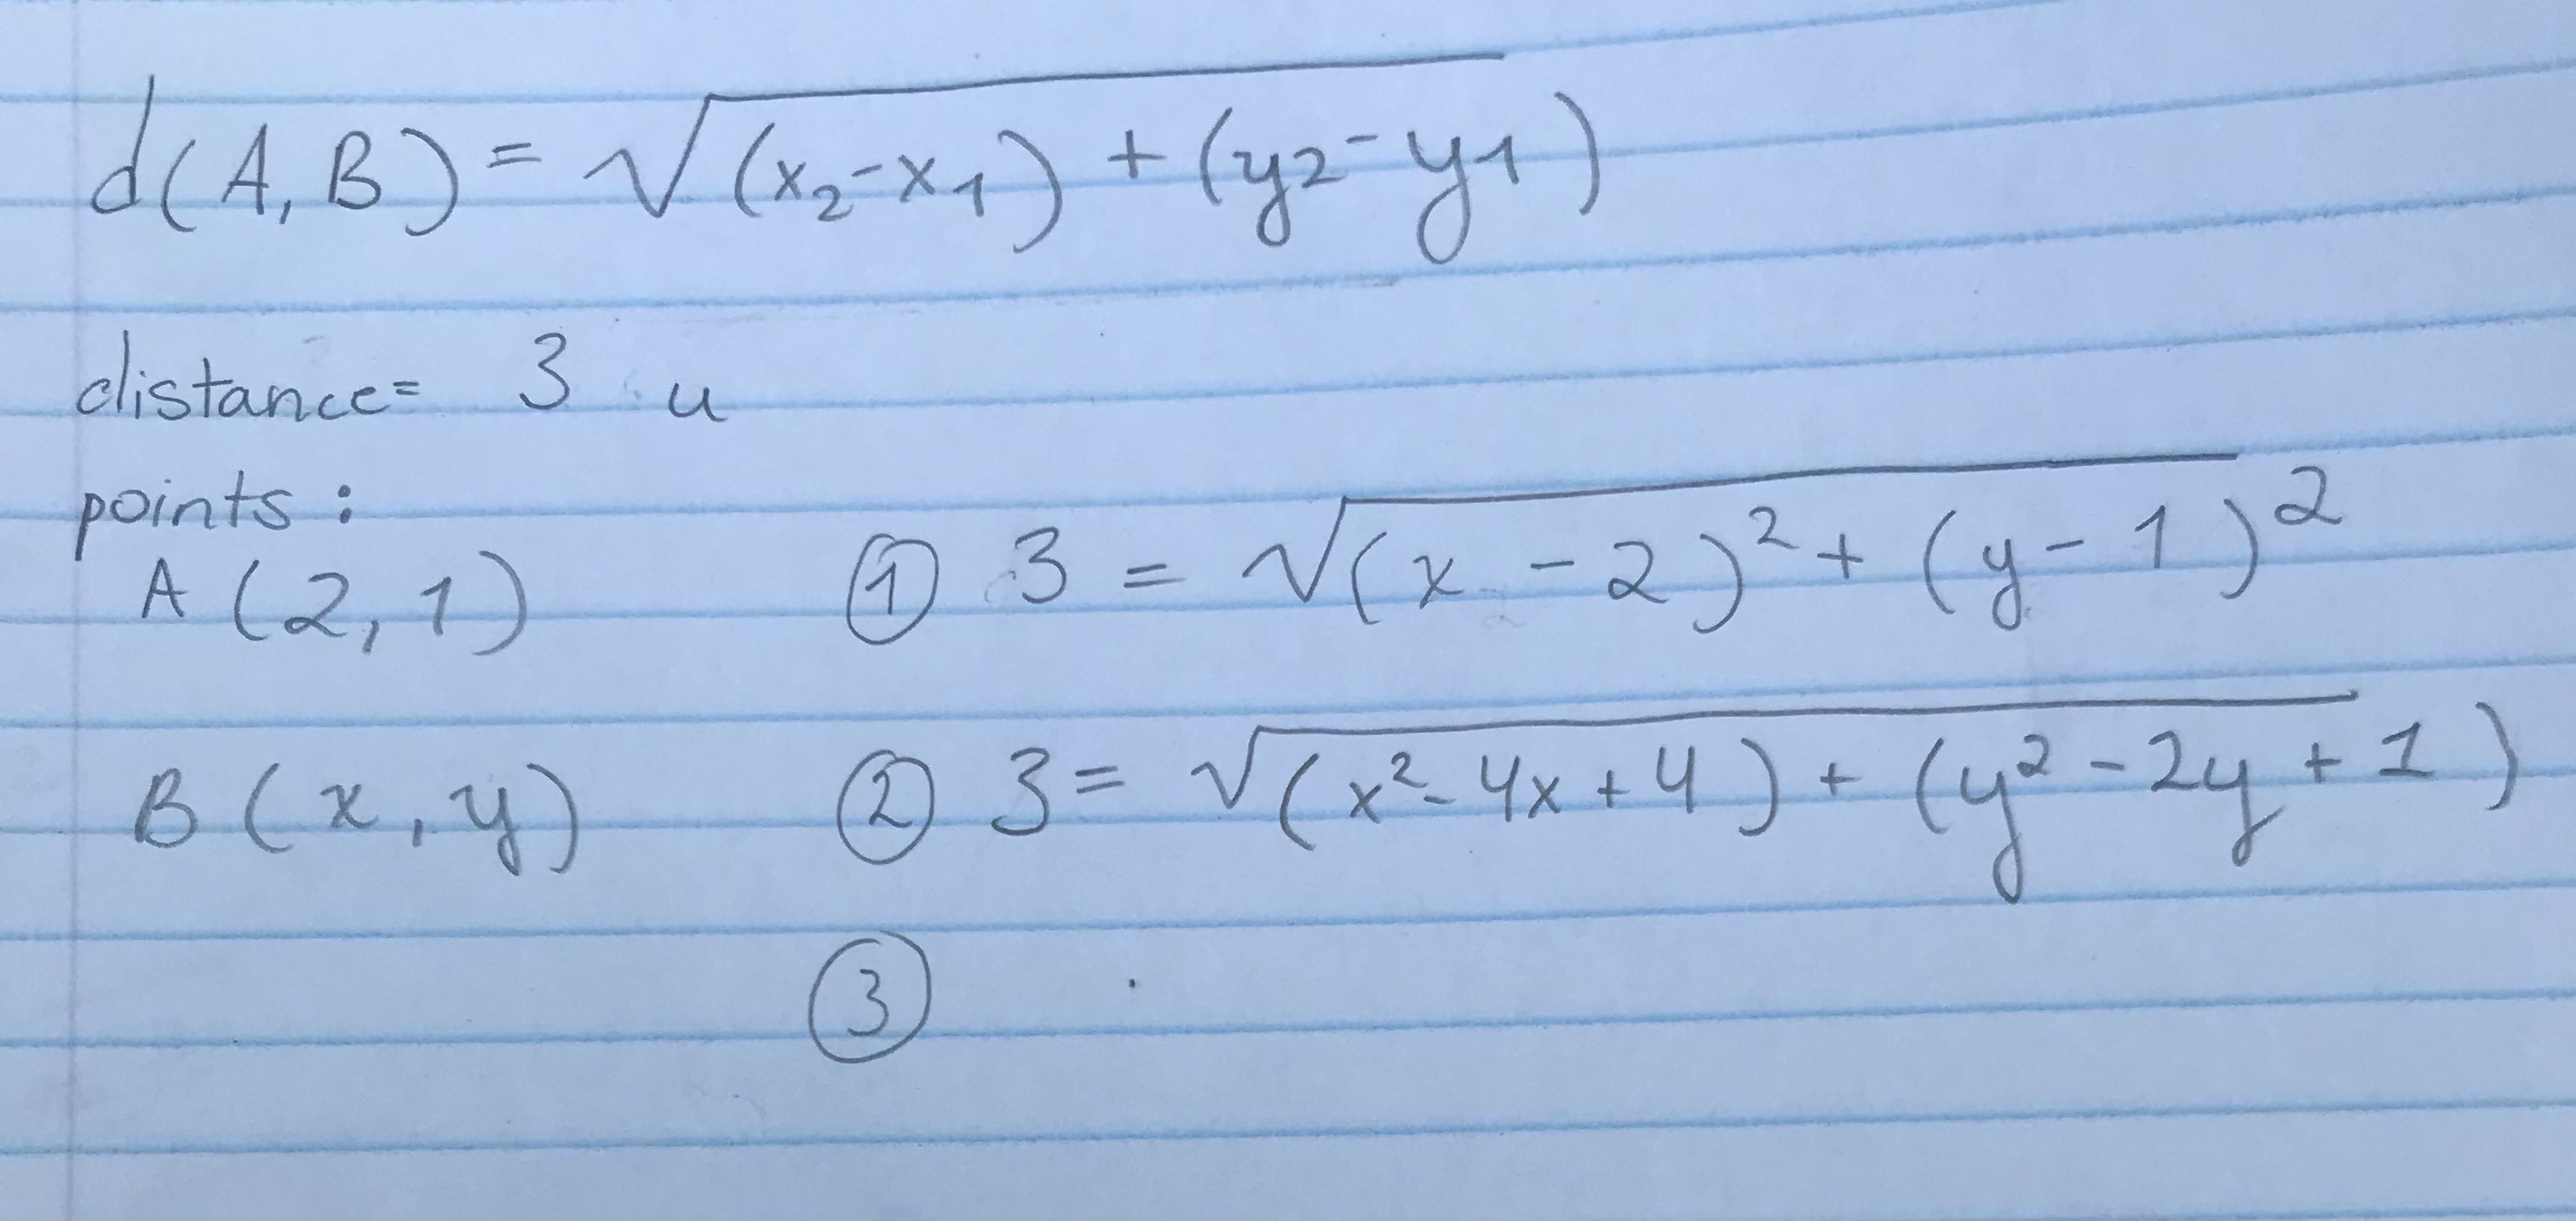 d(A, B) = √(x₂-x₁) + (y2-y1)
distance= 3 u
points :
A (2, 1) ① 3 = √(x - 2)² + (y - 1)²
B (x, y) ② 3 = √(x² - 4x + 4) + (y² - 2y + 1)
③